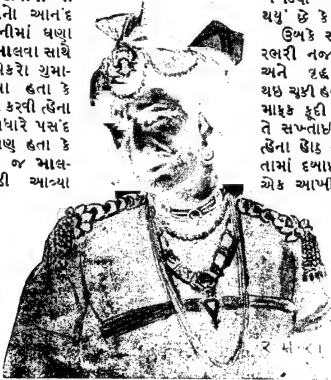 ેનો આનંદ
નીમાં ઘણા
માલવા સાથે
ેકરો ગુમા-
ા હતા કે
કરવી ત્હેના
ધારે પસંદ
ણ હતા કે
જ માલ-
ડી આવ્યા
થયું છે કે
ઉબકે સ
રભરી નજ
અને વૃદ્ધ
થઇ ચૂકી હ
માફક કૂદી
તે સખ્તાઇ
ત્હેના હોઠ
તામાં દબા
એક આખી